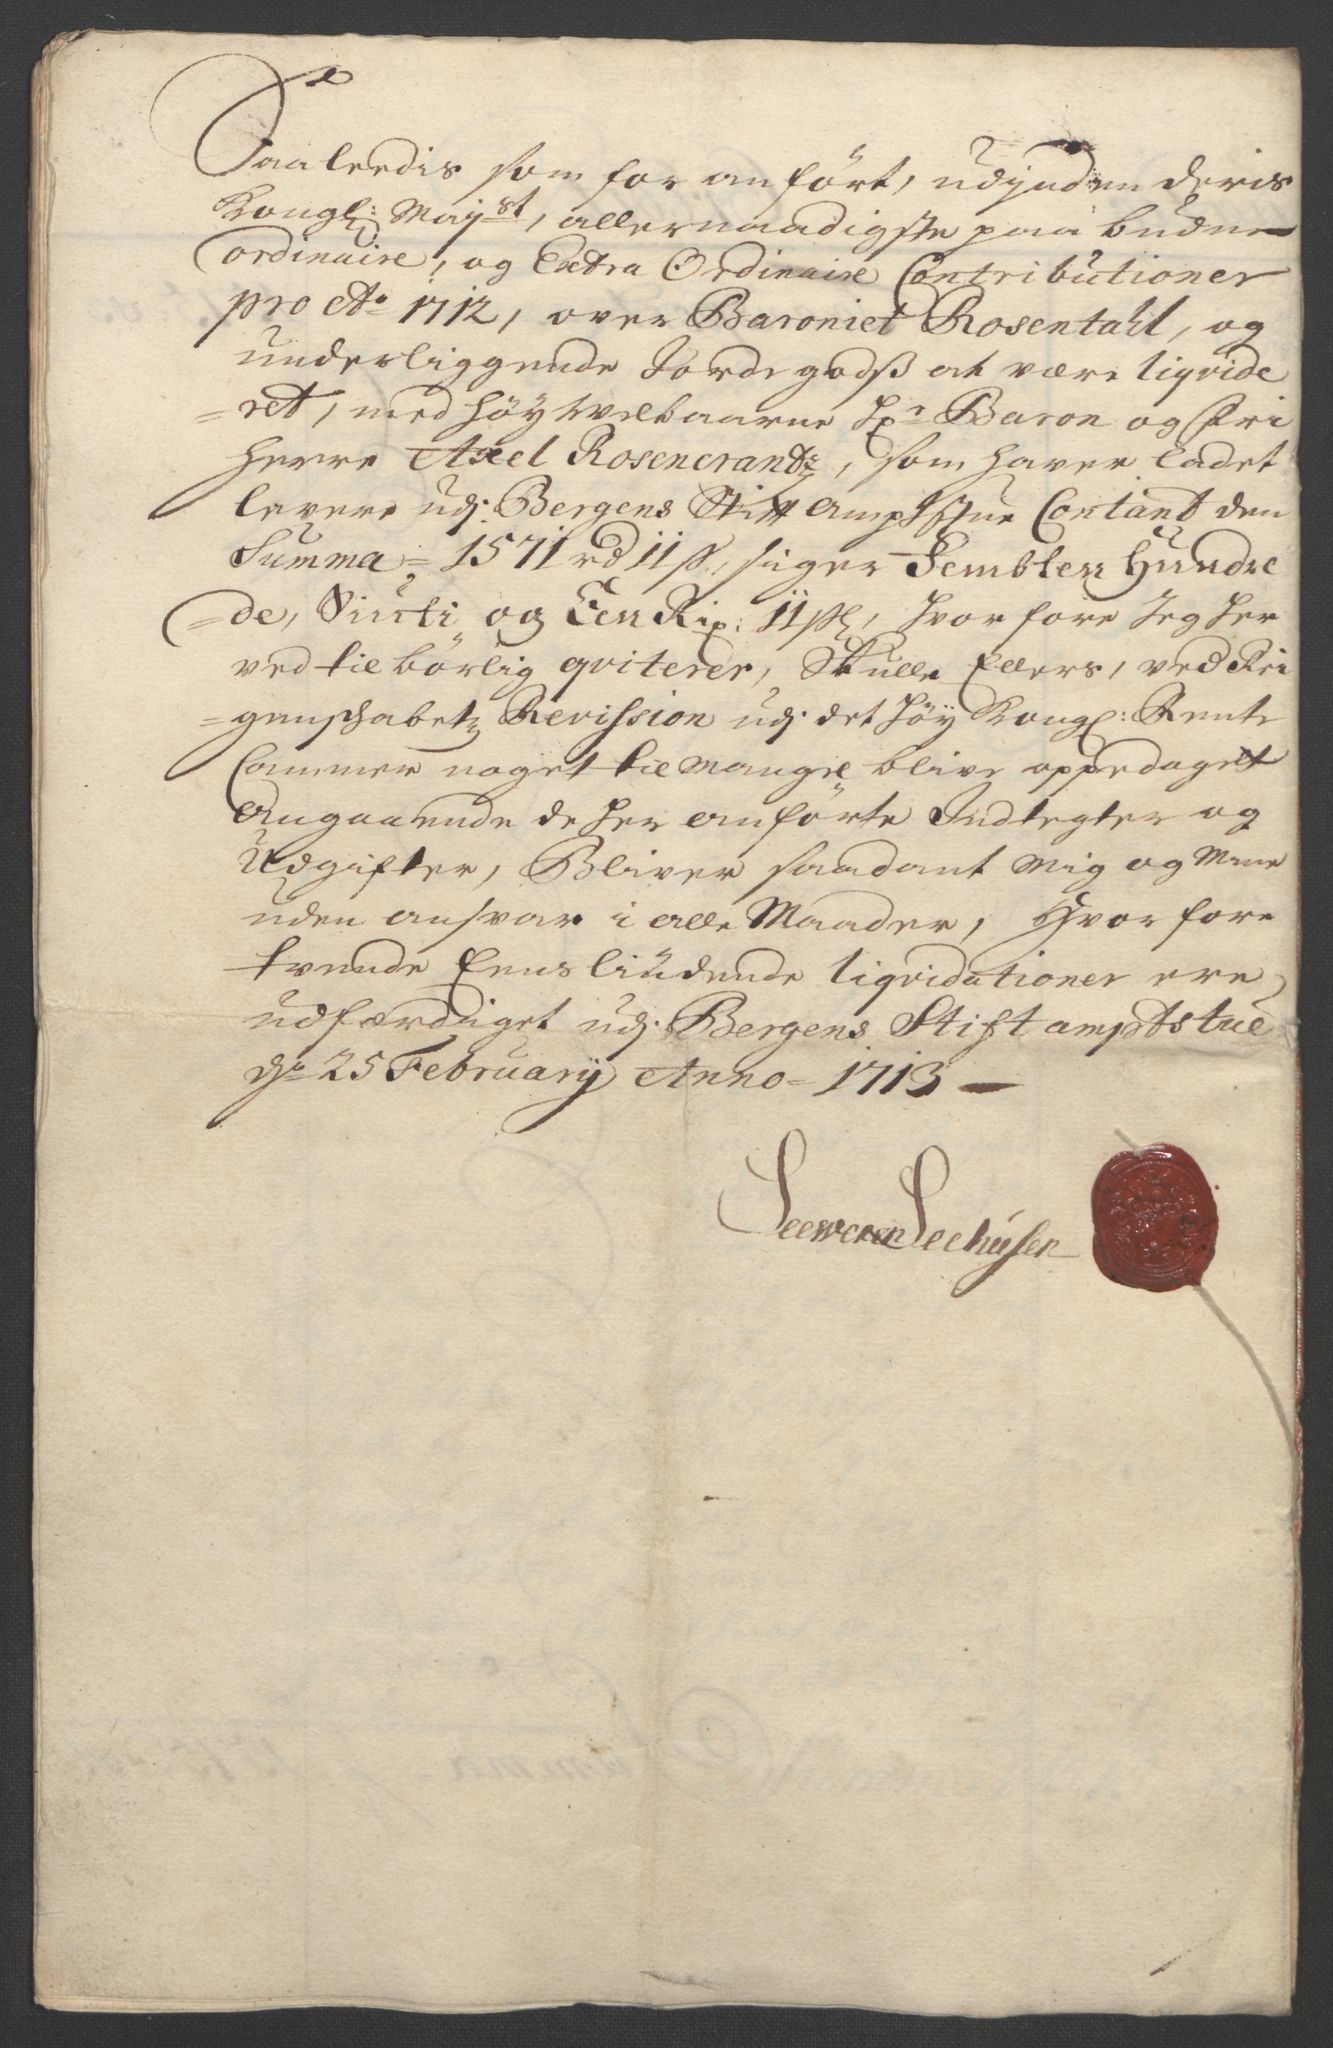 Saaleedis som for anført, udjnden deris
Kongl: Mayst, allernaadigste paa budne
ordinaire, og Extra Ordinaire Contributioner
pro Ao 1712, over Baroniet Rosentahl, og
underliggende Jordegodtz at være liqvide
=ret, med Høy Welbaarne Hr Baron og Fri
Herre Axel Rosencrantz, som haver ladet
levere udj Bergens Stift Amptstue Contant den
Summa = 1571 rd 11 s, siger Fembten Hundre
=de, Siufti og Een Rix: 11 sk, hvorfore Jeg her
ved tilbørlig qviterer, Skulle Ellers, ved Rei
=genschabetz Revission udj det høy Kongl: Rente
Cammer noget til Mangel blive oppedaget
Angaaende de her anførte Indtegter og
Udgifter, Bliver saadant mig og Mine
uden ansvar i alle Maader, Hvorfore
tvende Eenslüdende liqvidationer ere
udfærdiget udj Bergens Stift amptstue
dn 25 February Anno = 1713
Seeweren Seehusen